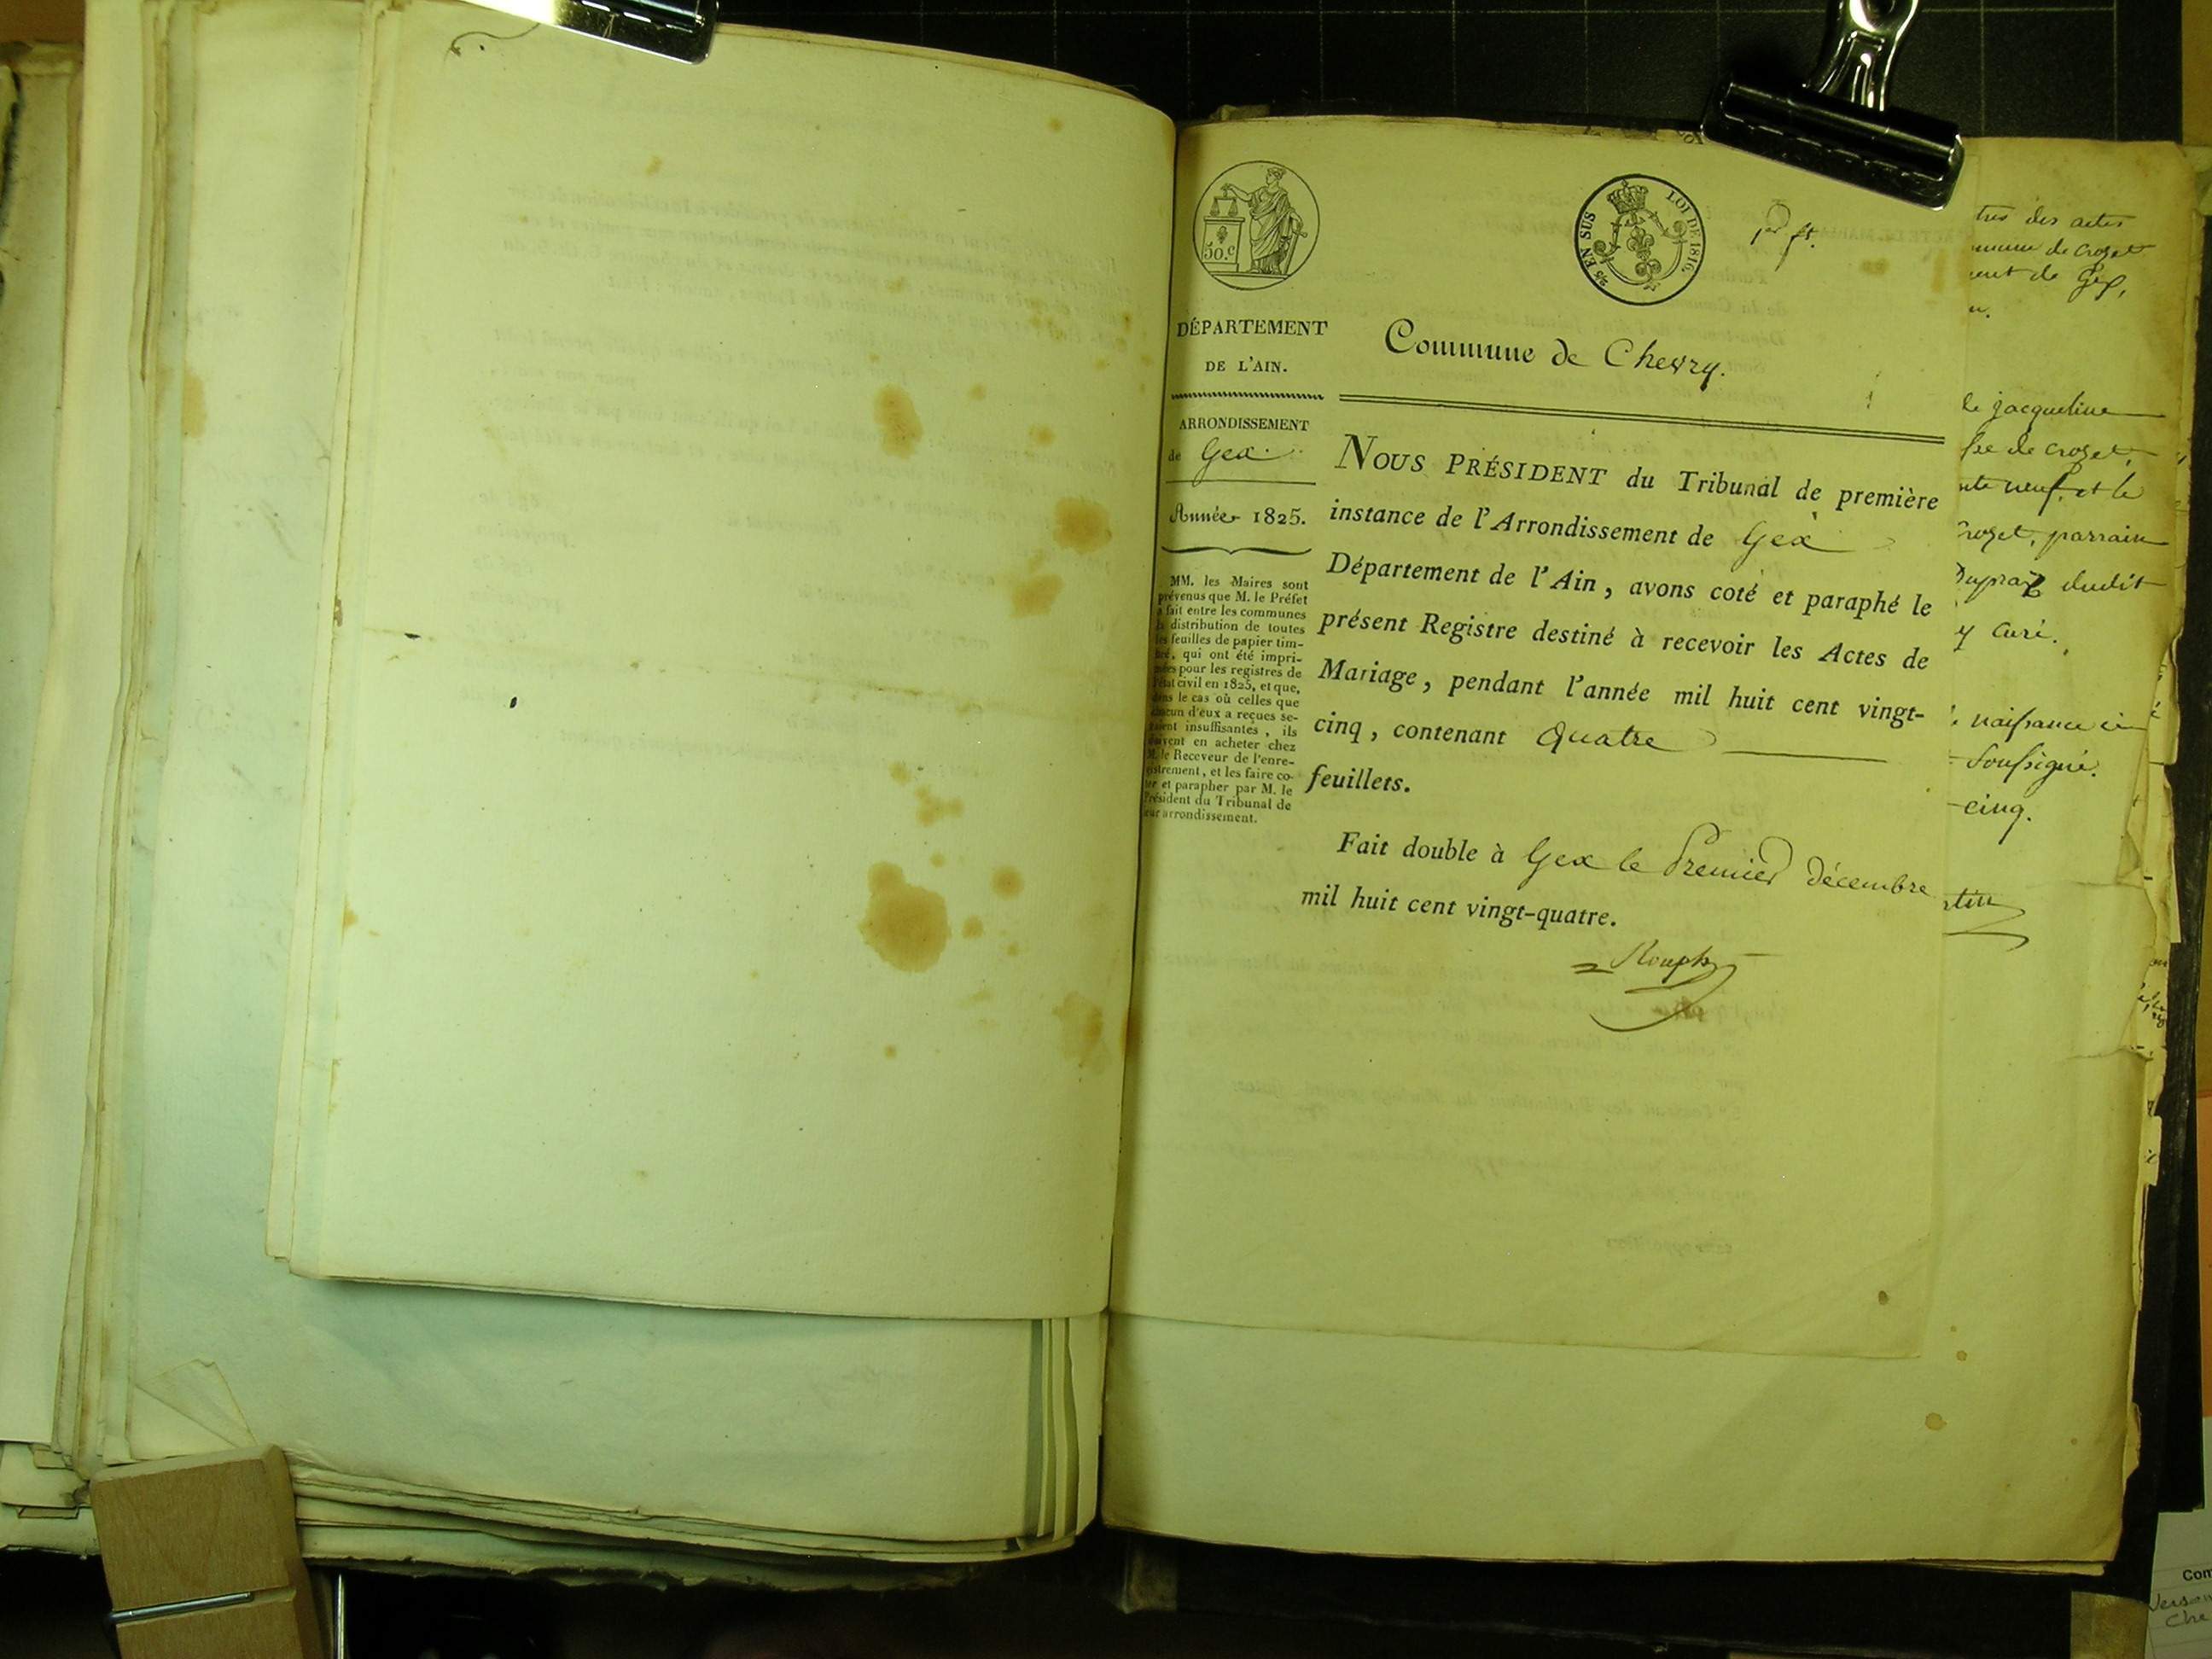 50.c
2/10 EN SUS
LOI DE 1816.
1er ft.
DÉPARTEMENT
DE L'AIN.
Commune de Chevry.
ARRONDISSEMENT
de Gex.
Année 1825.
MM. les Maires sont
prévenus que M. le Préfet
a fait entre les communes
la distribution de toutes
les feuilles de papier tim-
bré, qui ont été impri-
mées pour les registres de
l'état civil en 1825, et que,
dans le cas où celles que
chacun d'eux a reçues se-
raient insuffisantes, ils
doivent en acheter chez
M. le Receveur de l'enre-
gistrement, et les faire co-
ter et parapher par M. le
Président du Tribunal de
leur arrondissement.
NOUS PRÉSIDENT du Tribunal de première
instance de l'Arrondissement de Gex
Département de l'Ain, avons coté et paraphé le
présent Registre destiné à recevoir les Actes de
Mariage, pendant l'année mil huit cent vingt-
cinq, contenant Quatre
feuillets.
Fait double à Gex le Premier décembre
mil huit cent vingt-quatre.
des actes
de crozet
de Gex,
jacqueline
de crozet,
neuf, et le
parrain
dudit
curé.
naissance
soussigné.
cinq.